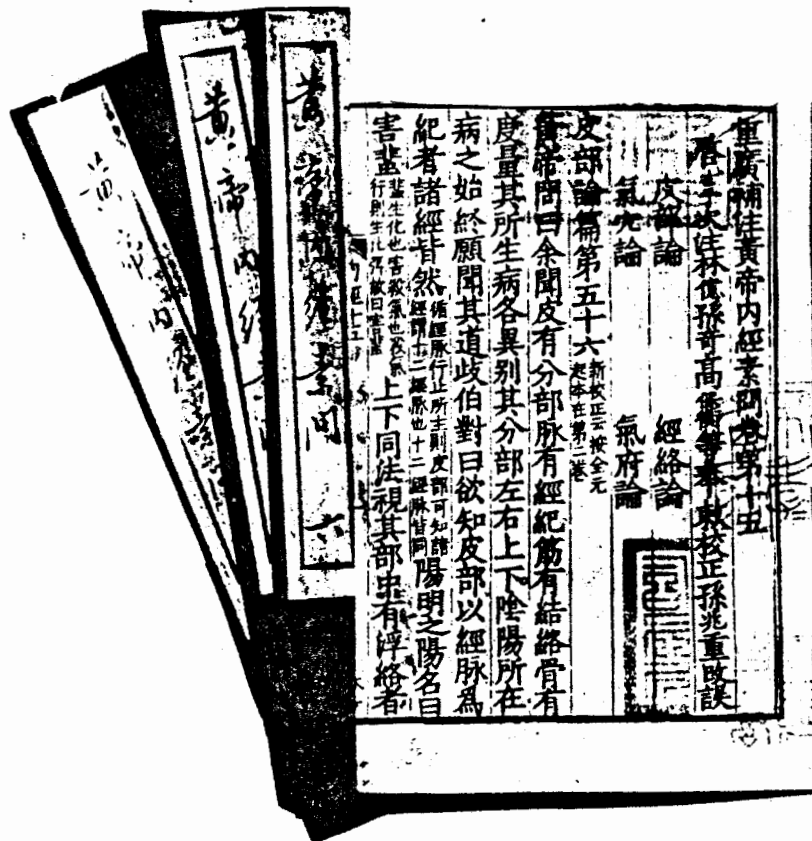 重廣補注黃帝內經素問卷第十五
啓玄子次注林億孫奇高保衡等奉敕校正孫兆重改誤
皮部論
經絡論
氣穴論
氣府論
皮部論篇第五十六
新校正云按全元
起本在第二卷
黃帝問曰余聞皮有分部脉有經紀筋有結絡骨有
度量其所生病各異別其分部左右上下陰陽所在
病之始終願聞其道歧伯對曰欲知皮部以經脉爲
紀者諸經皆然
循經脉行止所主則皮部可知諸
經謂十二經脉也十二經脉皆同
陽明之陽名曰
害蜚
蜚生化也害殺氣也殺氣
行則生化弭故曰害蜚
上下同法視其部中有浮絡者
黃帝內經素問 六
黃帝內經素問
黃帝內經素問